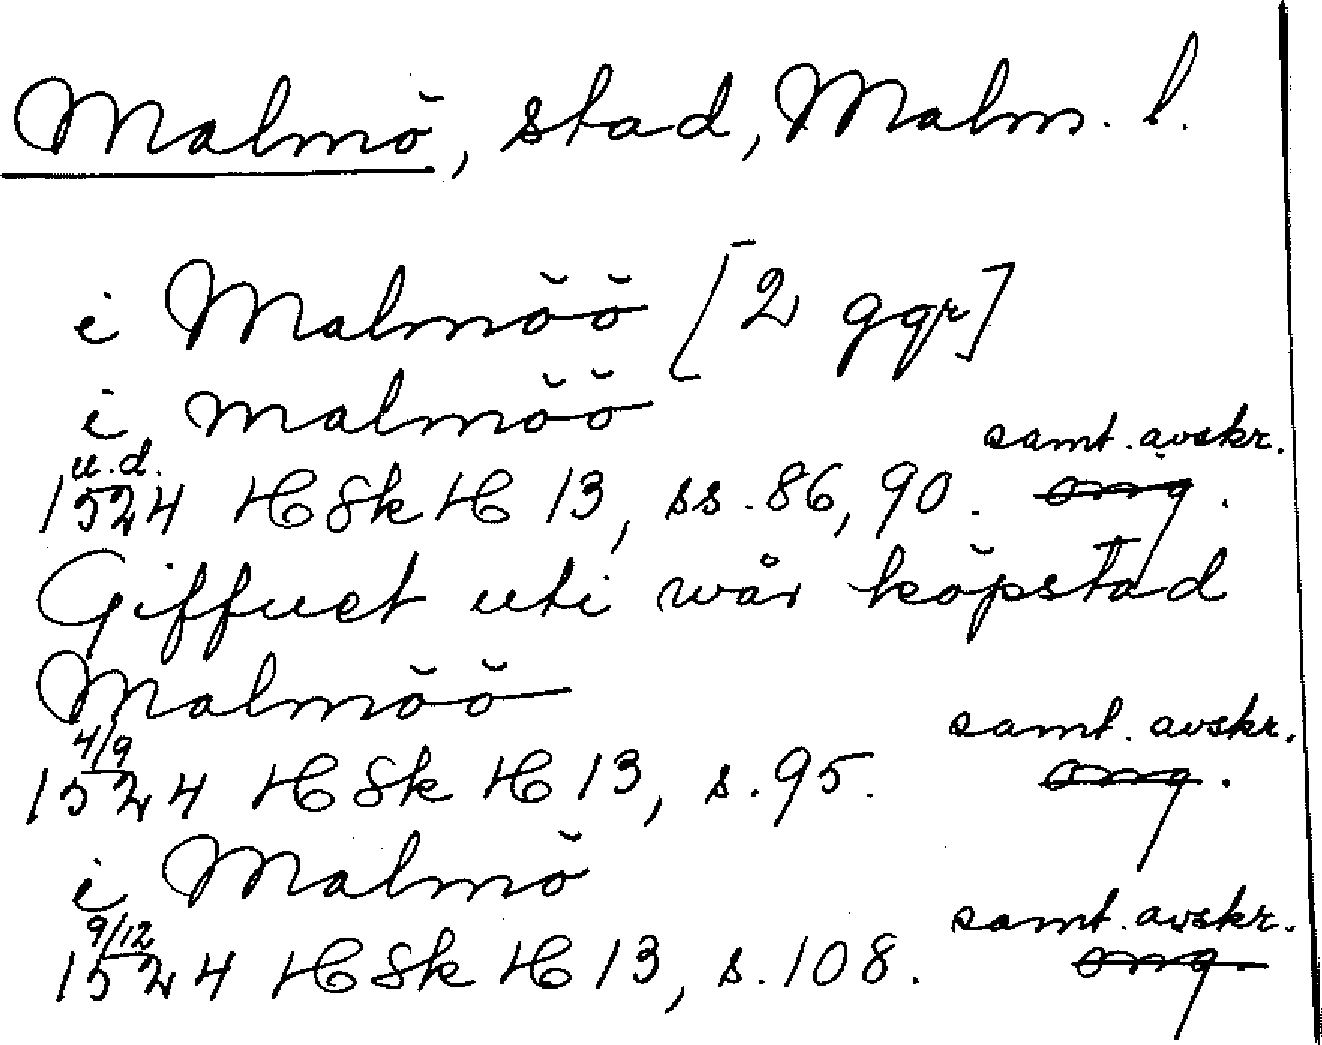 Malmö, stad, Malm. l.
i Malmöö [2 ggr]
i malmöö
samt. avskr.
u.d.
1524 HSk H 13, ss. 86, 90. org.
Giffuet uti wår köpstad
Malmöö
samt. avskr.
4/9
1524 HSk H 13, s. 95. org.
i Malmö
samt. avskr.
9/12
1524 HSk H 13, s. 108. org.